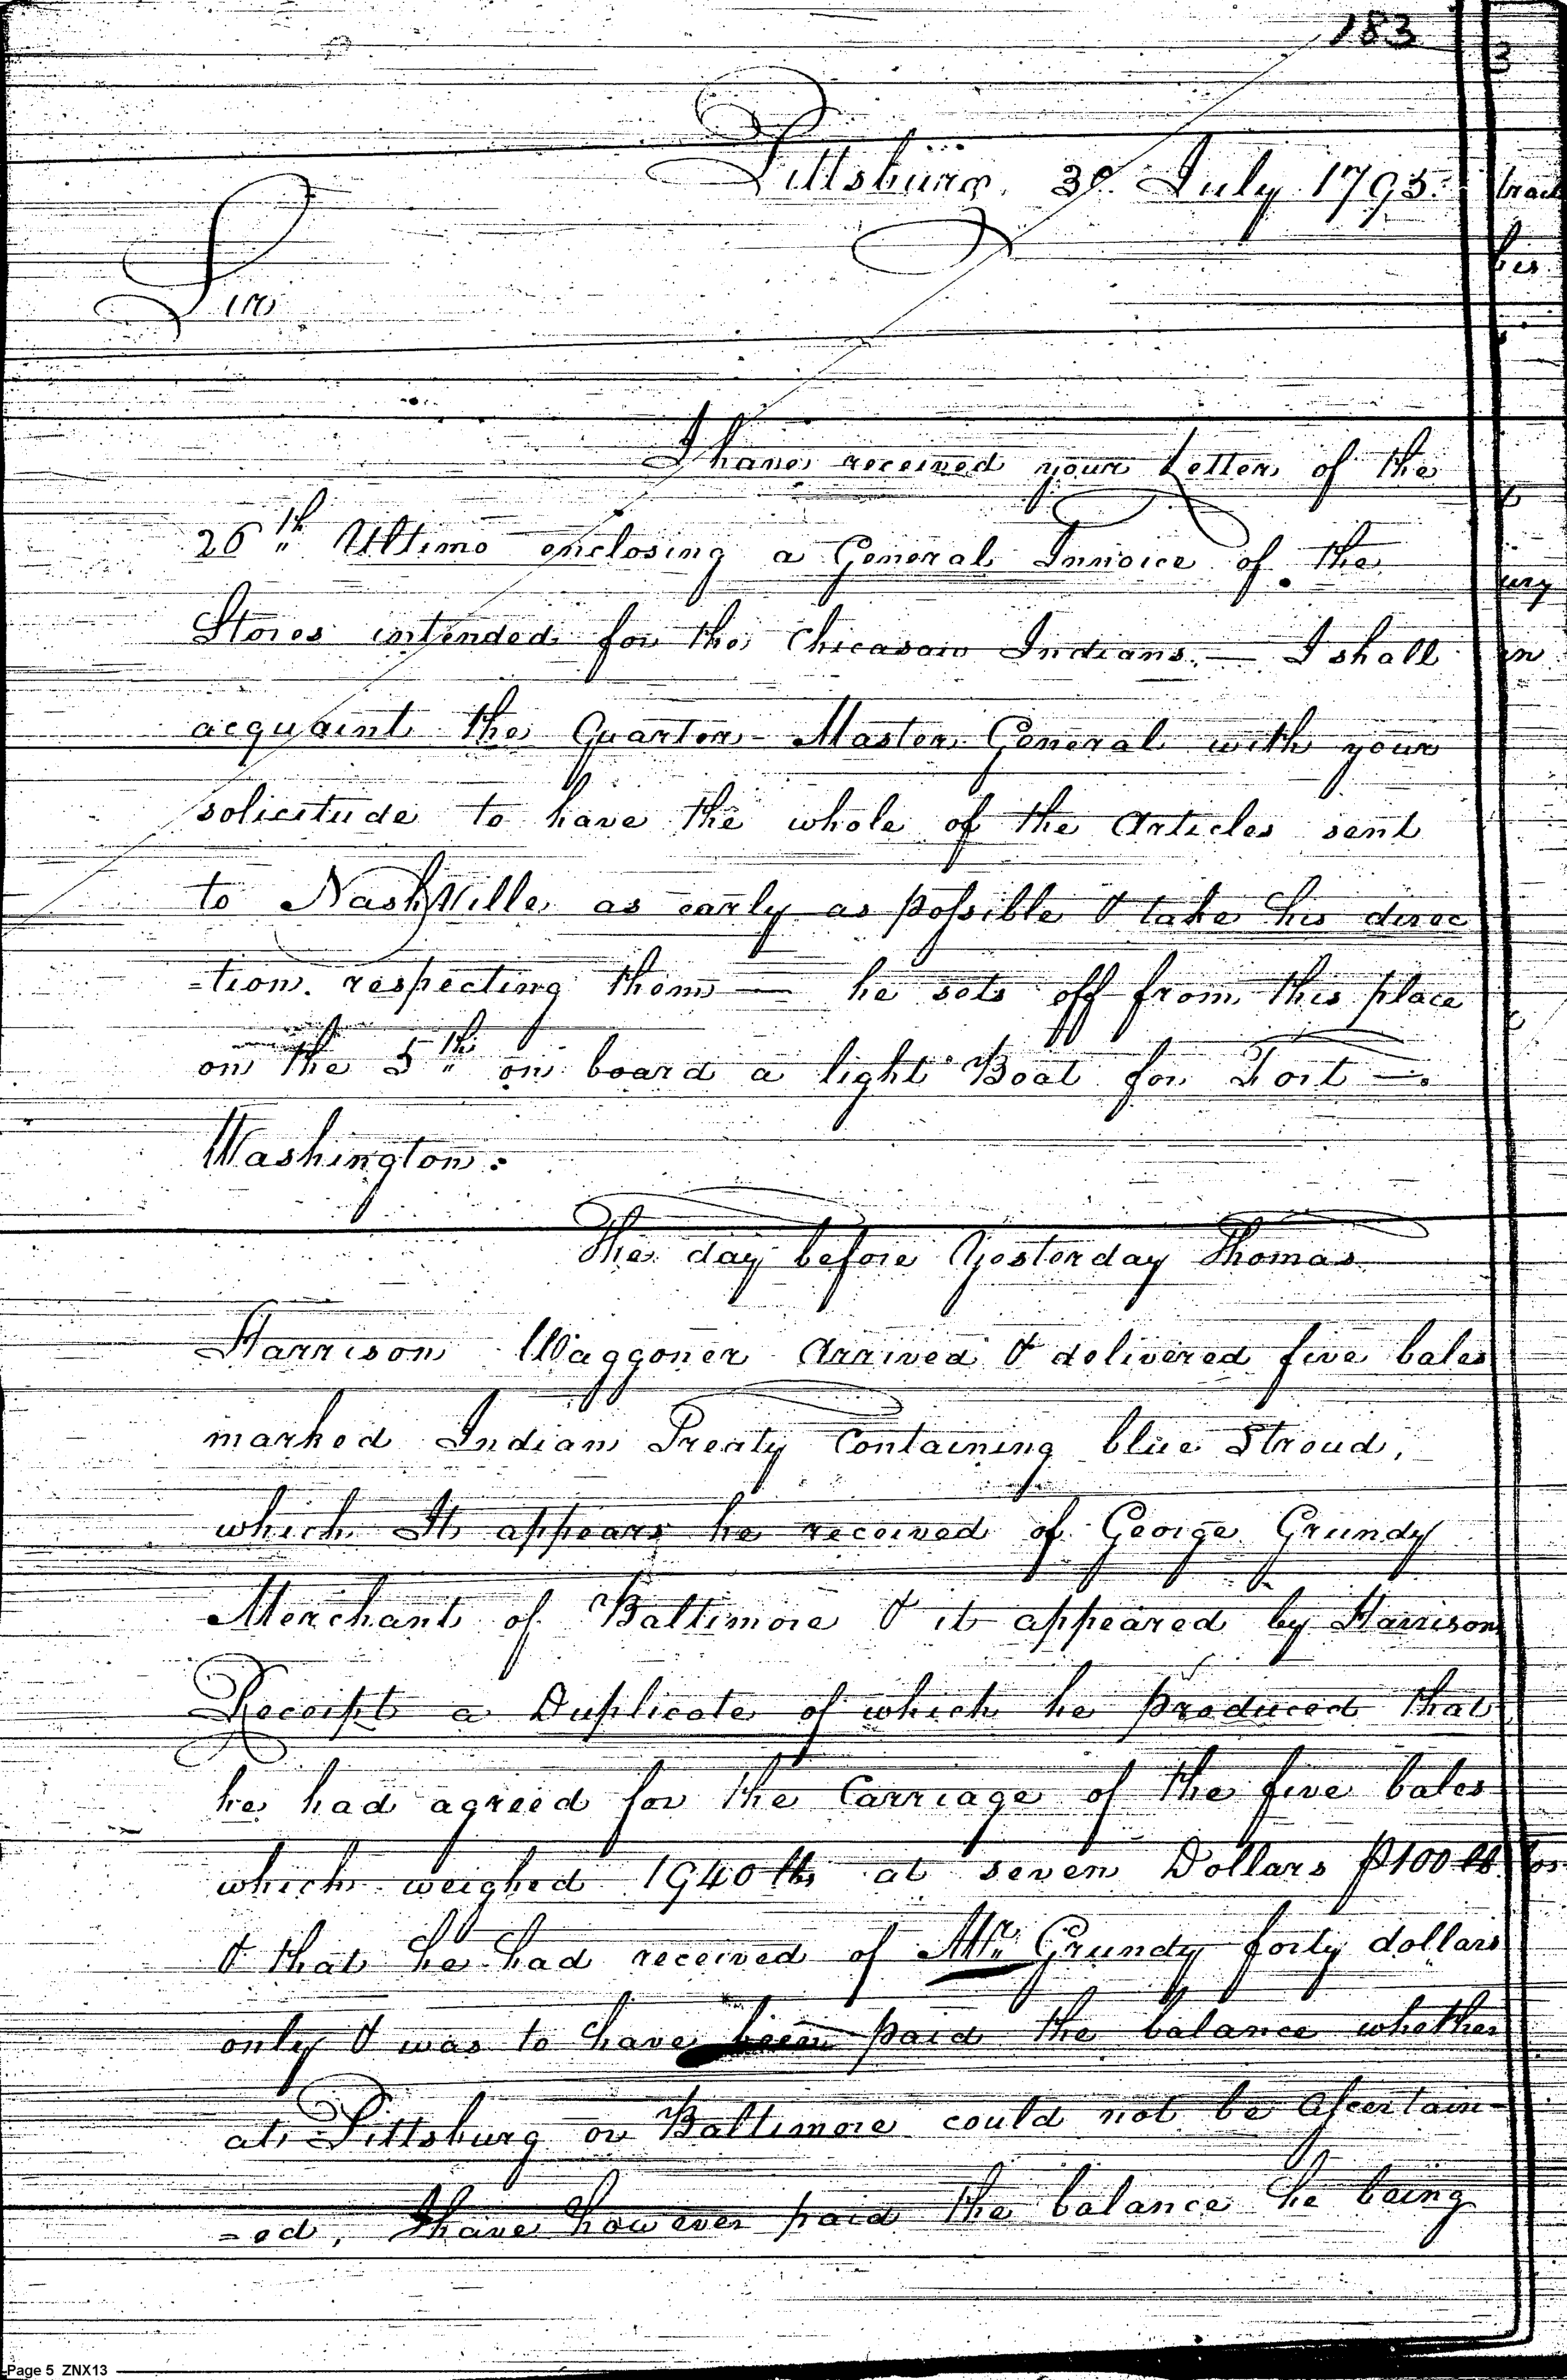 183
Pittsburg. 3d. July 1795.
Sir
I have received your Letter of the
26th Ultimo enclosing a General Invoice of the
Stores intended for the Chicasaw Indians. — I shall
acquaint the Quarter-Master General with your
solicitude to have the whole of the Articles sent
to NashVille as early as possible & take his direc
=tion. respecting them — he sets off from this place
on the 5th on board a light Boat for Fort —
Washington.
The day before Yesterday Thomas
Harrison Waggoner Arrived & delivered five bales
marked Indian Treaty Containing blue Stroud,
which It appears he received of George Grundy
Merchant of Baltimore & it appeared by Harrison
Receipt a Duplicate of which he produced that
he had agreed for the Carriage of the five bales
which weighed 1940 lbs at seven Dollars P 100 lb
& that he had received of Mr. Grundy forty dollars
only & was to have been paid the balance whether
at Pittsburg or Baltimore could not be Ascertain-
=ed, I have however paid the balance he being
Page 5 ZNX13